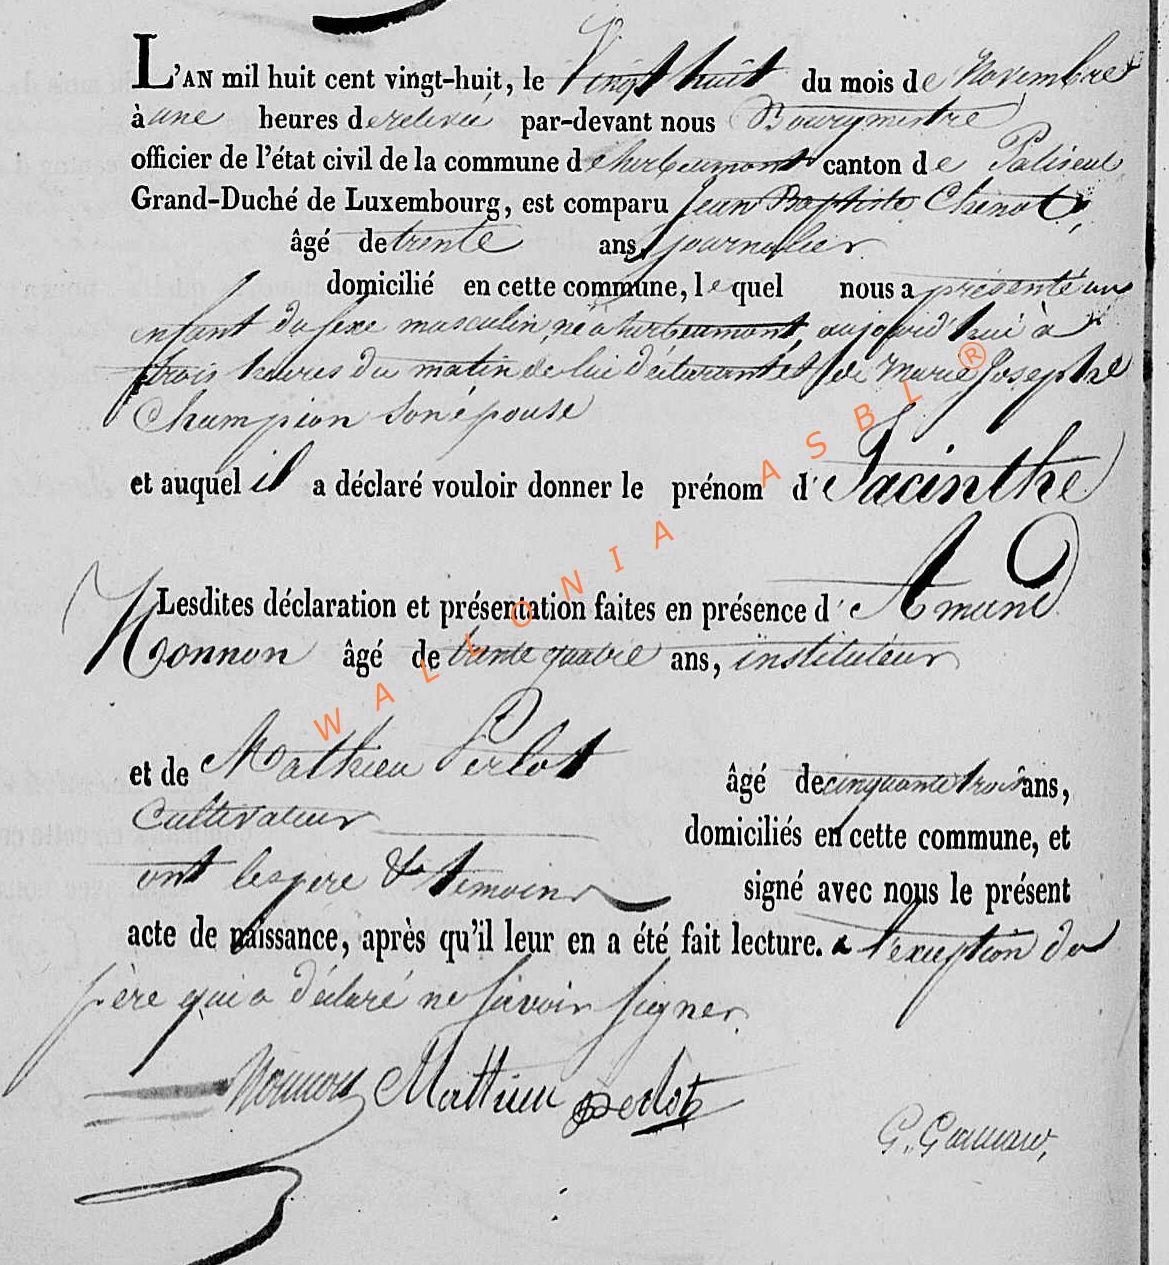 L'AN mil huit cent vingt-huit, le Vingt huit du mois de Novembre
à une heures de relevée par-devant nous Bourgmestre
officier de l'état civil de la commune d'herbeumont canton de Paliseul
Grand-Duché de Luxembourg, est comparu Jean Baptiste Chenot,
âgé de trente ans, journalier
domicilié en cette commune, lequel nous a présenté un
enfant du sexe masculin, né à herbeumont, aujourd'hui à
trois heures du matin de lui déclarant et de Marie Josephe
Champion son épouse
et auquel il a déclaré vouloir donner le prénom d' Hacinthe
Lesdites déclaration et présentation faites en présence d' Amand
Nonnon âgé de trente quatre ans, instituteur
et de Mathieu Perlot âgé de cinquante trois ans,
Cultivateur domiciliés en cette commune, et
ont les pere & temoins signé avec nous le présent
acte de naissance, après qu'il leur en a été fait lecture. a l'exception du
père qui a déclaré ne savoir signer.
Nonnon Mathieu perlot
G.
WALLONIA ASBL ®